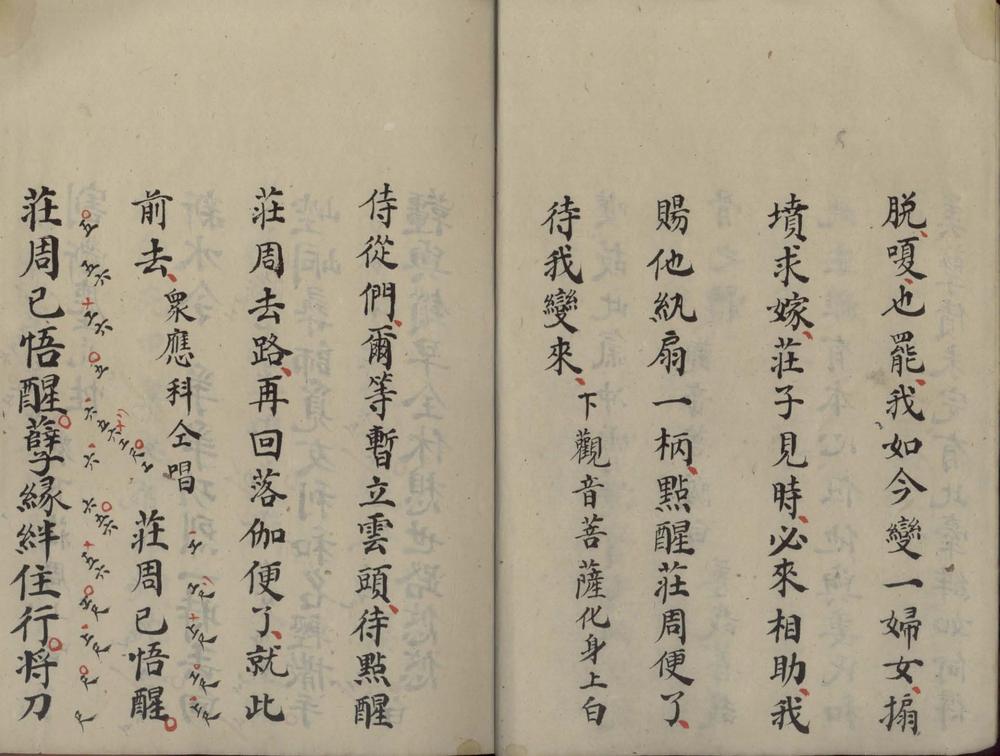 脱、嗄、也罷、我如今變一婦女、搧
墳求嫁、莊子見時、必來相助、我
賜他紈扇一柄、點醒莊周便了、
待我變來、下觀音菩薩化身上白
侍從們、爾等暫立雲頭、待點醒
莊周去路、再回落伽便了、就此
前去、衆應科仝唱 莊周已悟醒
莊周已悟醒孽緣絆住行将刀